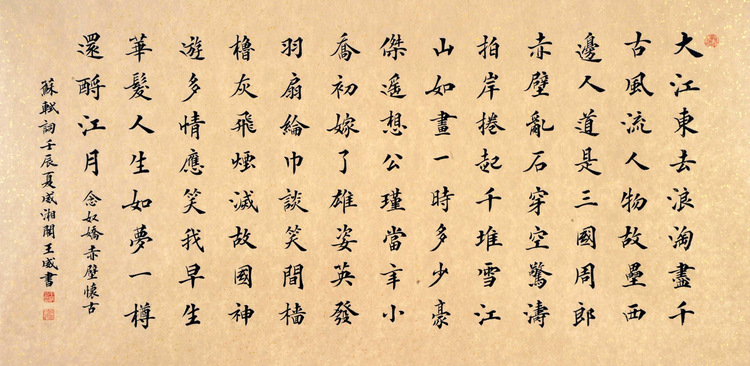 大江東去浪淘盡千
古風流人物故壘西
邊人道是三國周郎
赤壁亂石穿空驚濤
拍岸捲起千堆雪江
山如畫一時多少豪
傑遥想公瑾當年小
喬初嫁了雄姿英發
羽扇綸巾談笑間檣
櫓灰飛煙滅故國神
遊多情應笑我早生
華髮人生如夢一樽
還酹江月
念奴嬌赤壁懷古
蘇軾詞壬辰夏威湘閣王威書